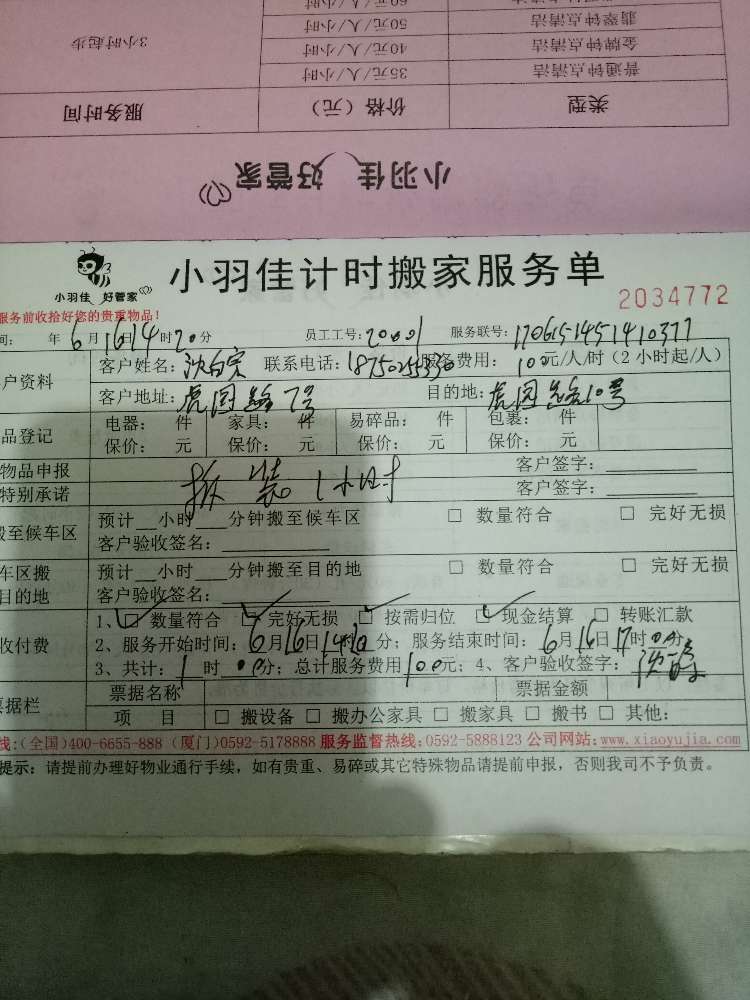 60元/人/小时
翡翠钟点清洁 50元/人/小时
金牌钟点清洁 40元/人/小时 3小时起步
普通钟点清洁 35元/人/小时
类型 价格（元） 服务时间
小羽佳 好管家
小羽佳 好管家
小羽佳计时搬家服务单
2034772
服务前收拾好您的贵重物品！
间： 年6月16 14时20分 员工工号：20001 服务联号：170615145141037
户资料
客户姓名： 联系电话： 服务费用：100元/人/时（2小时起/人）
客户地址：虎园路7号 目的地：虎园路10号
品登记
电器： 件 家具： 件 易碎品： 件 包裹： 件
保价： 元 保价： 元 保价： 元 保价： 元
物品申报 客户签字：
特别承诺 拆装1小时 客户签字：
搬至候车区
预计__小时___分钟搬至候车区 □ 数量符合 □ 完好无损
客户验收签名：
车区搬
目的地
预计__小时___分钟搬至目的地 □ 数量符合 □ 完好无损
客户验收签名：
收付费
1、☑ 数量符合 ☑ 完好无损 ☑ 按需归位 ☑ 现金结算 □ 转账汇款
2、服务开始时间：6月16日14时20分；服务结束时间：6月16日17时00分
3、共计：1时00分；总计服务费用100元；4、客户验收签字：
票据栏
票据名称 票据金额
项 目 □ 搬设备 □ 搬办公家具 □ 搬家具 □ 搬书 □ 其他：
线：(全国)400-6655-888 (厦门)0592-5178888 服务监督热线：0592-5888123 公司网站：www.xiaoyujia.com
提示：请提前办理好物业通行手续，如有贵重、易碎或其它特殊物品请提前申报，否则我司不予负责。